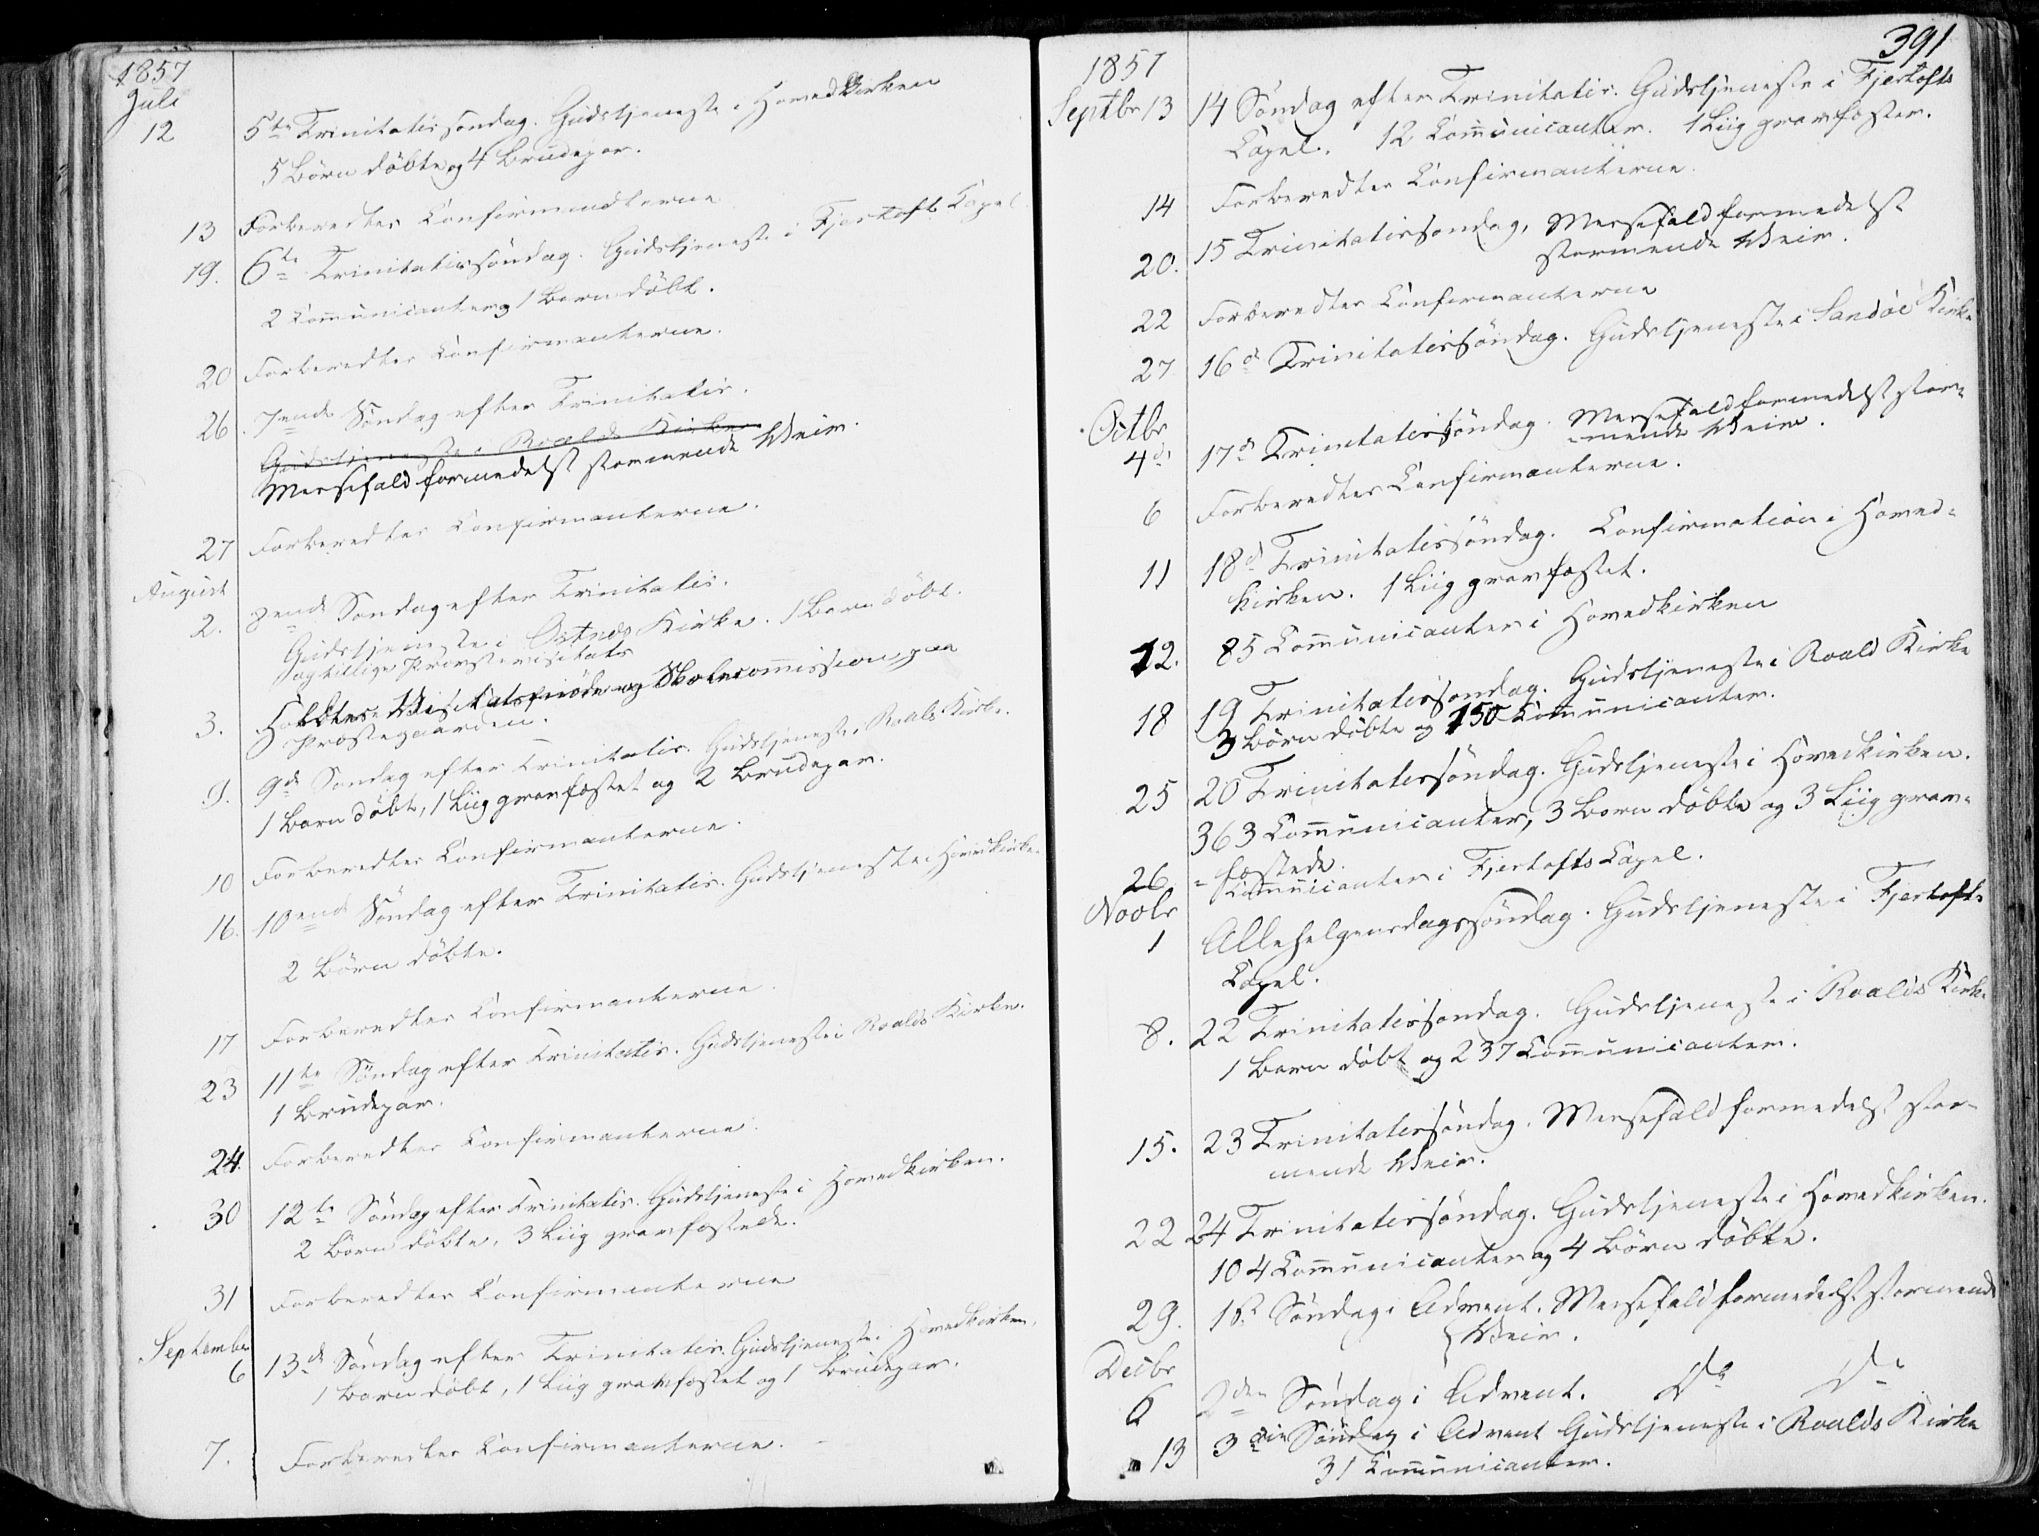 1857
Juli
12 5te Trinitatissøndag. Gudstjeneste i Hovedkirken
5 Børn døbte og 4 Brudepar.
13 Forberedtes Confirmanterne
19. 6te Trinitatissøndag. Gudstjeneste i Fjertofts Capel
2 Communicanter og 1 Barn døbt.
20 Forberedtes Confirmanterne.
26 7ende Søndag efter Trinitatis.
Gudstjeneste i Roalds Kirke
Messefald formedelst stormende Veir.
27 Forberedtes Confirmanterne.
August
2. 8ende Søndag efter Trinitatis.
Gudstjeneste i Østnæs Kirke. 1 Barn døbt.
og tillige Provstevisitats
3. Holdtes Visitatsmøde og Skolecommission paa
Præstegaarden.
9. 9de Søndag efter Trinitatis. Gudstjeneste i Roalds Kirke.
1 Barn døbt, 1 Liig gravfæstet og 2 Brudepar.
10 Forberedtes Confirmanterne.
16. 10ende Søndag efter Trinitatis. Gudstjeneste i Hovedkirken
2 Børn døbte.
17 Forberedtes Confirmanterne.
23 11te Søndag efter Trinitatis. Gudstjeneste i Roalds Kirke.
1 Brudepar.
24. Forberedtes Confirmanterne.
30 12te Søndag efter Trinitatis. Gudstjeneste i Hovedkirken.
2 Børn døbte, 3 Liig gravfæstede.
31 Forberedtes Confirmanterne
September
6 13de Søndag efter Trinitatis. Gudstjeneste i Hovedkirken.
1 Barn døbt, 1 Liig gravfæstet og 1 Brudepar.
7. Forberedtes Confirmanterne.
391
1857
Septbr 13 14 Søndag efter Trinitatis. Gudstjeneste i Fjertofts
Capel. 12 Communicanter. 1 Liig gravfæstet.
14 Forberedtes Confirmanterne.
20. 15 Trinitatissøndag, Messefald formedelst
stormende Veir.
22 Forberedtes Confirmanterne
27 16d Trinitatissøndag. Gudstjeneste i Sandøe Kirke
Octbr
4d 17d Trinitatissøndag. Messefald formedelst stor-
-mende Veir.
6 Forberedtes Confirmanterne.
11 18d Trinitatissøndag. Confirmation i Hoved-
kirken. 1 Liig gravfæstet.
12. 85 Communicanter i Hovedkirken
18 19 Trinitatissøndag. Gudstjeneste i Roald Kirke
3 Børn døbte og 150 Communicanter.
25 20 Trinitatissøndag. Gudstjeneste i Hovedkirken.
363 Communicanter, 3 Børn døbte og 3 Liig grav-
-fæstede.
26 Communicanter i Fjertofts Capel.
Novbr
1 Allehelgensdagssøndag. Gudstjeneste i Fjertofts
Capel.
8. 22 Trinitatissøndag. Gudstjeneste i Roalds Kirke
1 Barn døbt og 237 Communicanter.
15. 23 Trinitatissøndag. Messefald formedelst stor-
mende Veir.
22 24 Trinitatissøndag. Gudstjeneste i Hovedkirken.
104 Communicanter og 4 Børn døbte.
29. 1st Søndag i Advent. Messefald formedelst stormende
Veir.
Decbr
6 2den Søndag i Advent. Do Do
13 3die Søndag i Advent Gudstjeneste i Roalds Kirke
31 Communicanter.